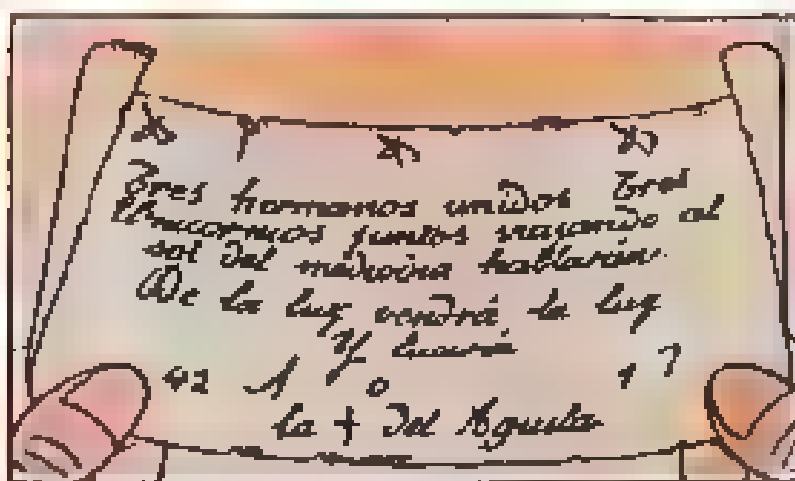 Tres hermanos unidos Tres
Unicornios juntos viajando al
sol del mediodia hablarán
De la luz vendrá la luz
Y lucirá
42 1 0
la + del Aguila